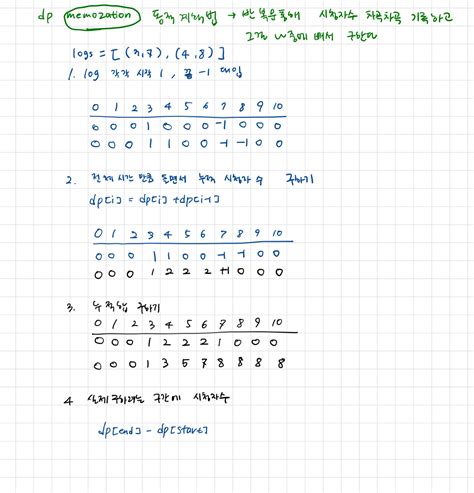 dp memozation 동적 계획법 → 반복문통해 시청자수 차곡차곡 기록하고
그걸 나중에 빼서 구한다
logs = [ (3,7), (4,8) ]
1. log 각각 시작 1, 끝 -1 대입
0 1 2 3 4 5 6 7 8 9 10
0 0 0 1 0 0 0 -1 0 0 0
0 0 0 1 1 0 0 -1 -1 0 0
2. 전체 시간 만큼 돌면서 누적 시청자 수 구하기
dp[i] = dp[i] + dp[i-1]
0 1 2 3 4 5 6 7 8 9 10
0 0 0 1 1 0 0 -1 -1 0 0
0 0 0 1 2 2 2 +1 0 0 0
3. 누적합 구하기
0 1 2 3 4 5 6 7 8 9 10
0 0 0 1 2 2 2 1 0 0 0
0 0 0 1 3 5 7 8 8 8 8
4 실제 구하려는 구간에 시청자수
dp[end] - dp[start]